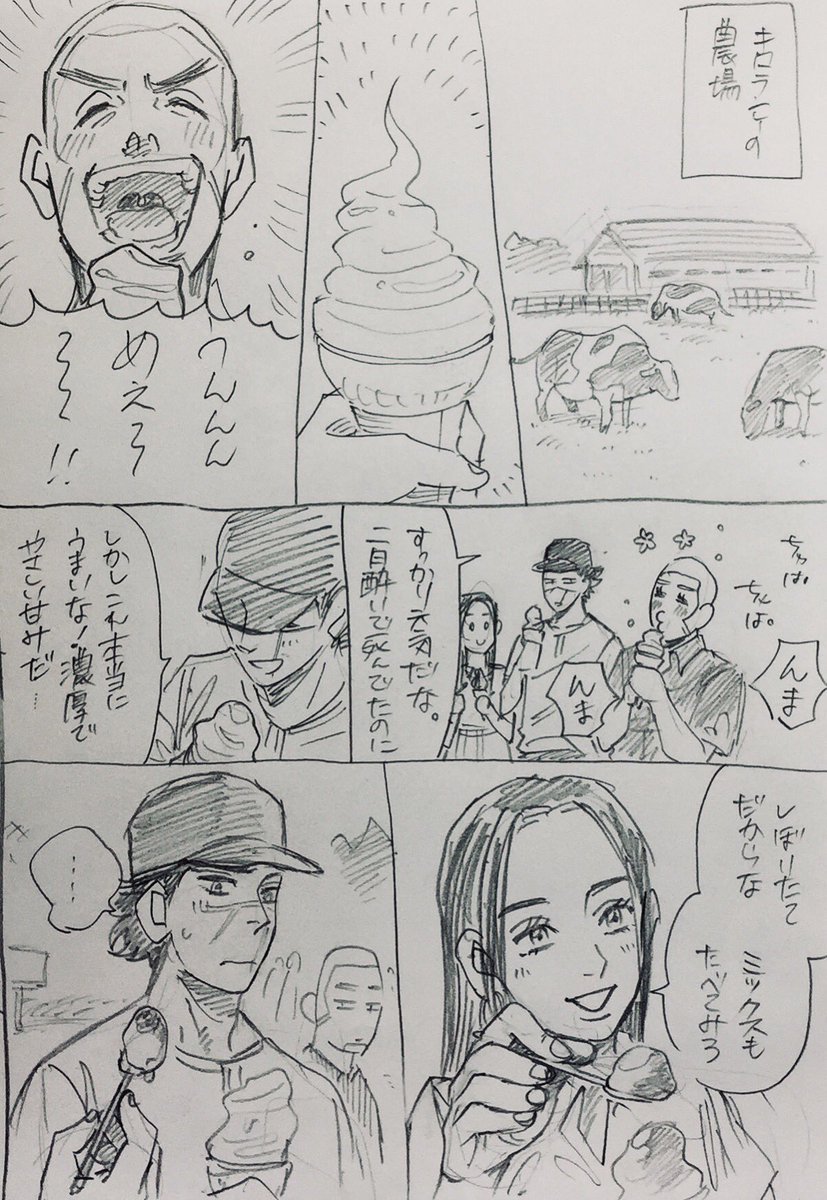 キロランケの
農場
うんんん
めえ〜
〜〜!!
ちゅぱ。
ちゅぱ。
んま
んま
すっかり元気だな。
二日酔いで死んでたのに
しかしこれ本当に
うまいな!濃厚で
やさしい甘みだ…
しぼりたて
だからな
ミックスも
たべてみろ
....